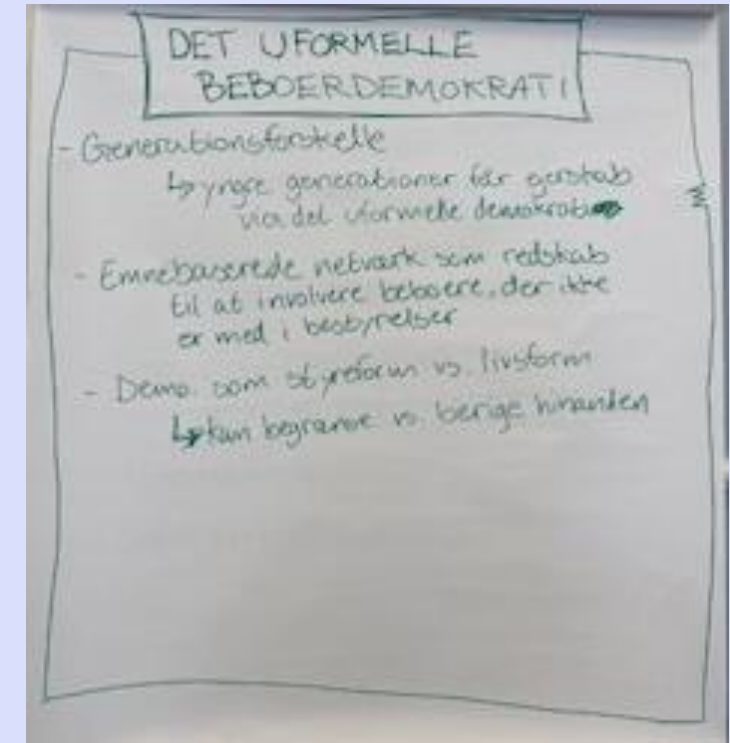 DET UFORMELLE
BEBOERDEMOKRATI
- Generationsforskelle
↳ yngre generationer får ejerskab
via det uformelle demokrati
- Emnebaserede netværk som redskab
til at involvere beboere, der ikke
er med i bestyrelser
- Demo. som styreform vs. livsform
↳ kan begrænse vs. berige hinanden